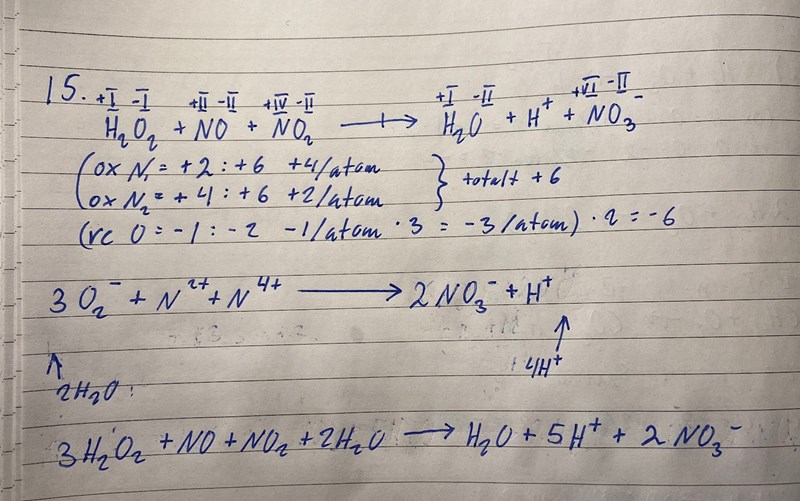 15. +I -I +II -II +IV -II +I -II +VI -II
H₂O₂ + NO + NO₂ ⟶ H₂O + H⁺ + NO₃⁻
(ox N₁ = +2 : +6 +4/atom
(ox N₂ = +4 : +6 +2/atom } totalt +6
(rc O = -1 : -2 -1/atom · 3 = -3/atom) · 2 = -6
3 O₂⁻ + N²⁺ + N⁴⁺ ⟶ 2 NO₃⁻ + H⁺
↑ ↑
4H⁺
2H₂O
3H₂O₂ + NO + NO₂ + 2H₂O ⟶ H₂O + 5H⁺ + 2 NO₃⁻